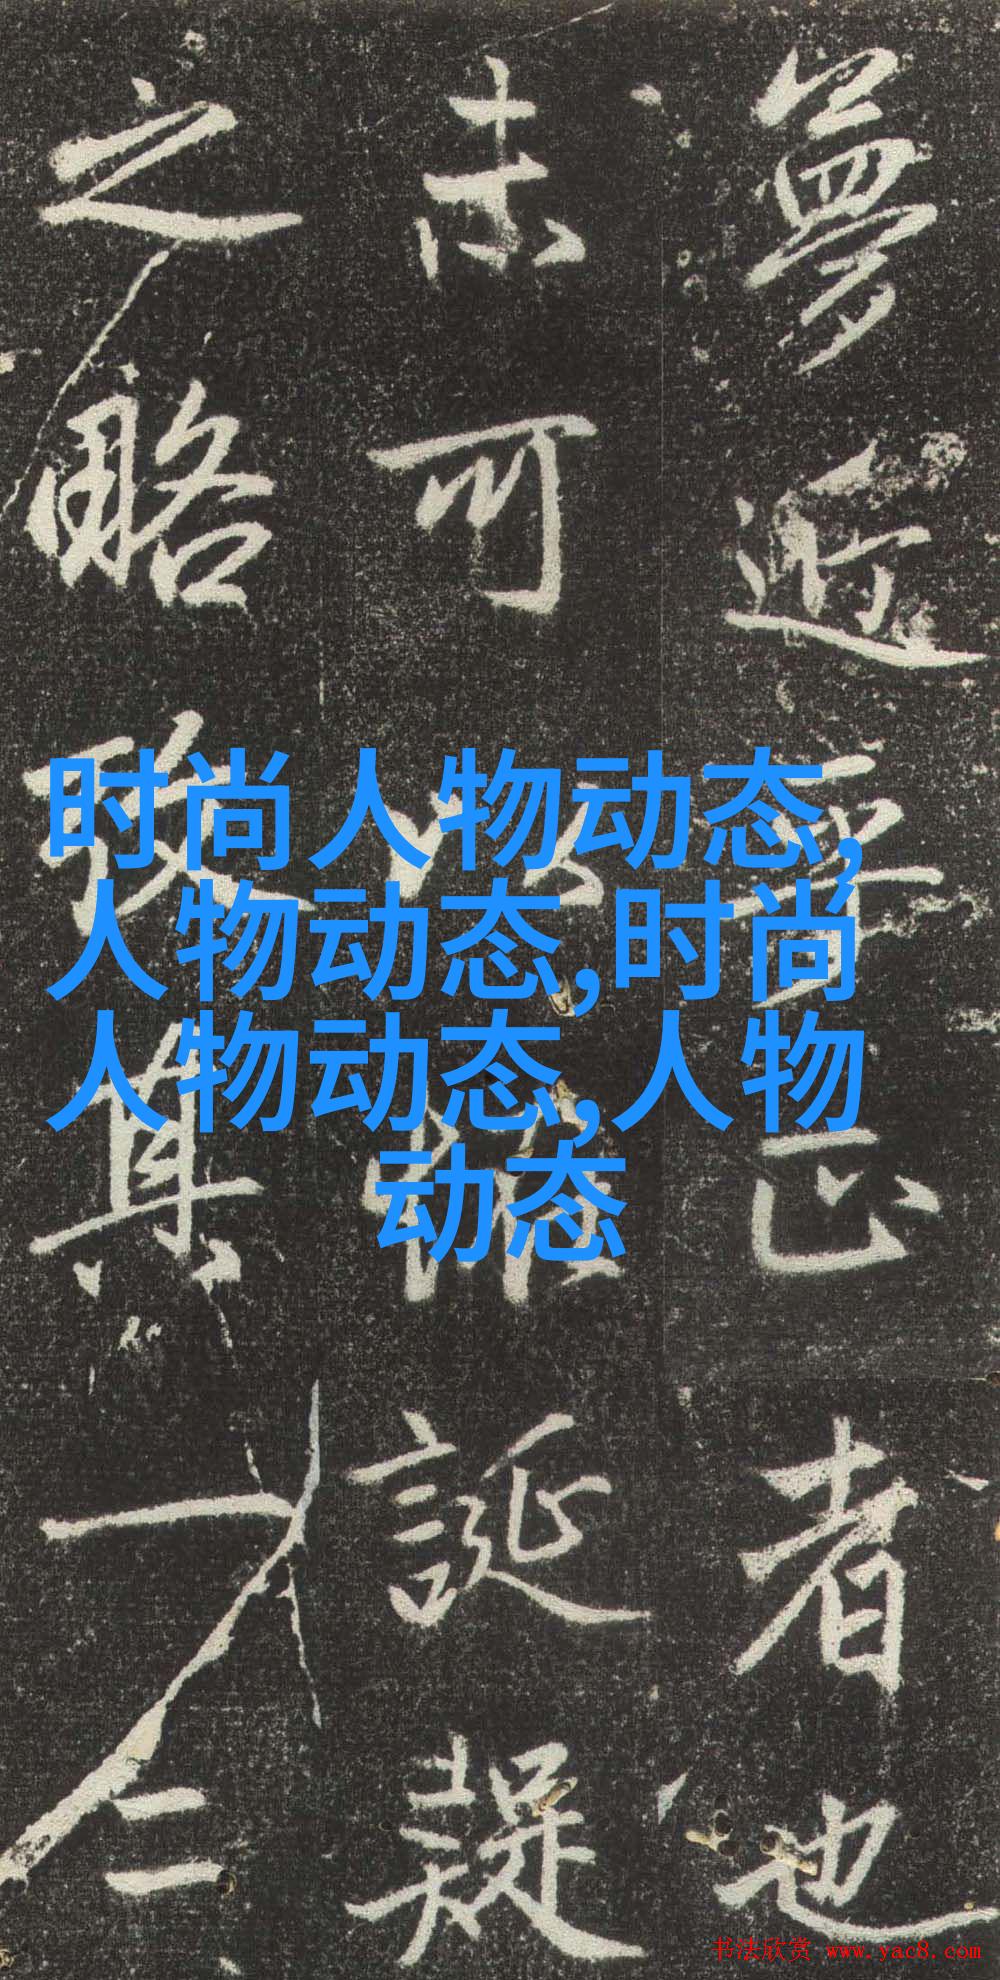 夢近窂正者也
未可以惟誕疑
之略致其一二
时尚人物动态,
人物动态,时尚
人物动态,人物
动态
书法欣赏 www.yac8.com